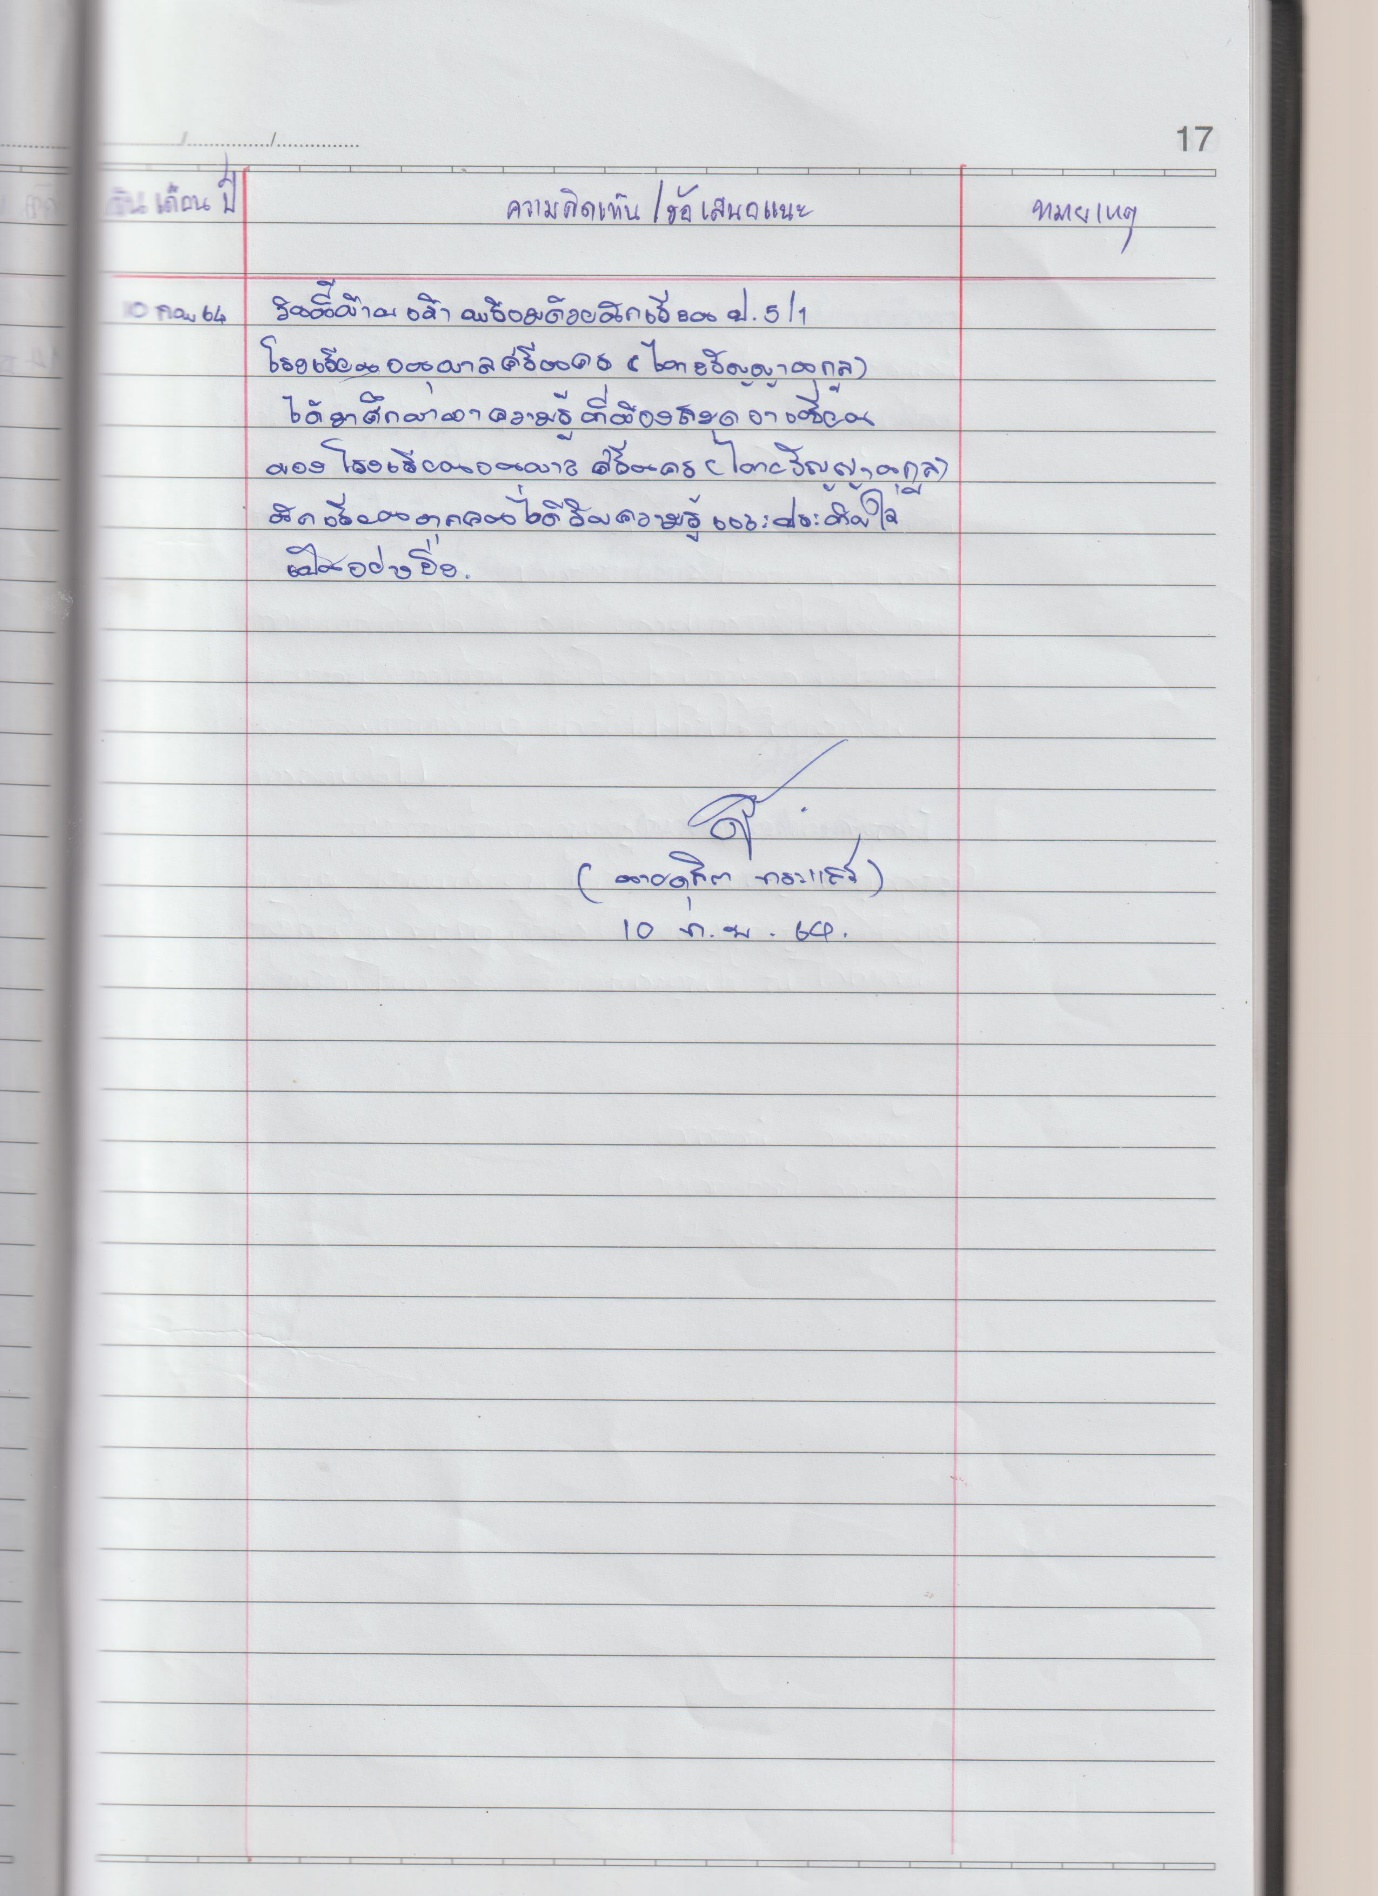 17
วัน เดือน ปี ความคิดเห็น/ข้อเสนอแนะ หมายเหตุ
10 กพ 64 วันนี้ข้าพเจ้า พร้อมด้วยนักเรียน ป.5/1
โรงเรียนอนุบาลศรีนคร (ไทยรัฐ
ได้มาศึกษาหาความรู้ ที่ห้องสมุด อาเซียน
ของ โรงเรียนอนุบาล ศรีนคร (
นักเรียนทุกคนได้รับความรู้ และประทับใจ
เป็นอย่างยิ่ง.
(นายดุสิต
10 ก.พ. 64.